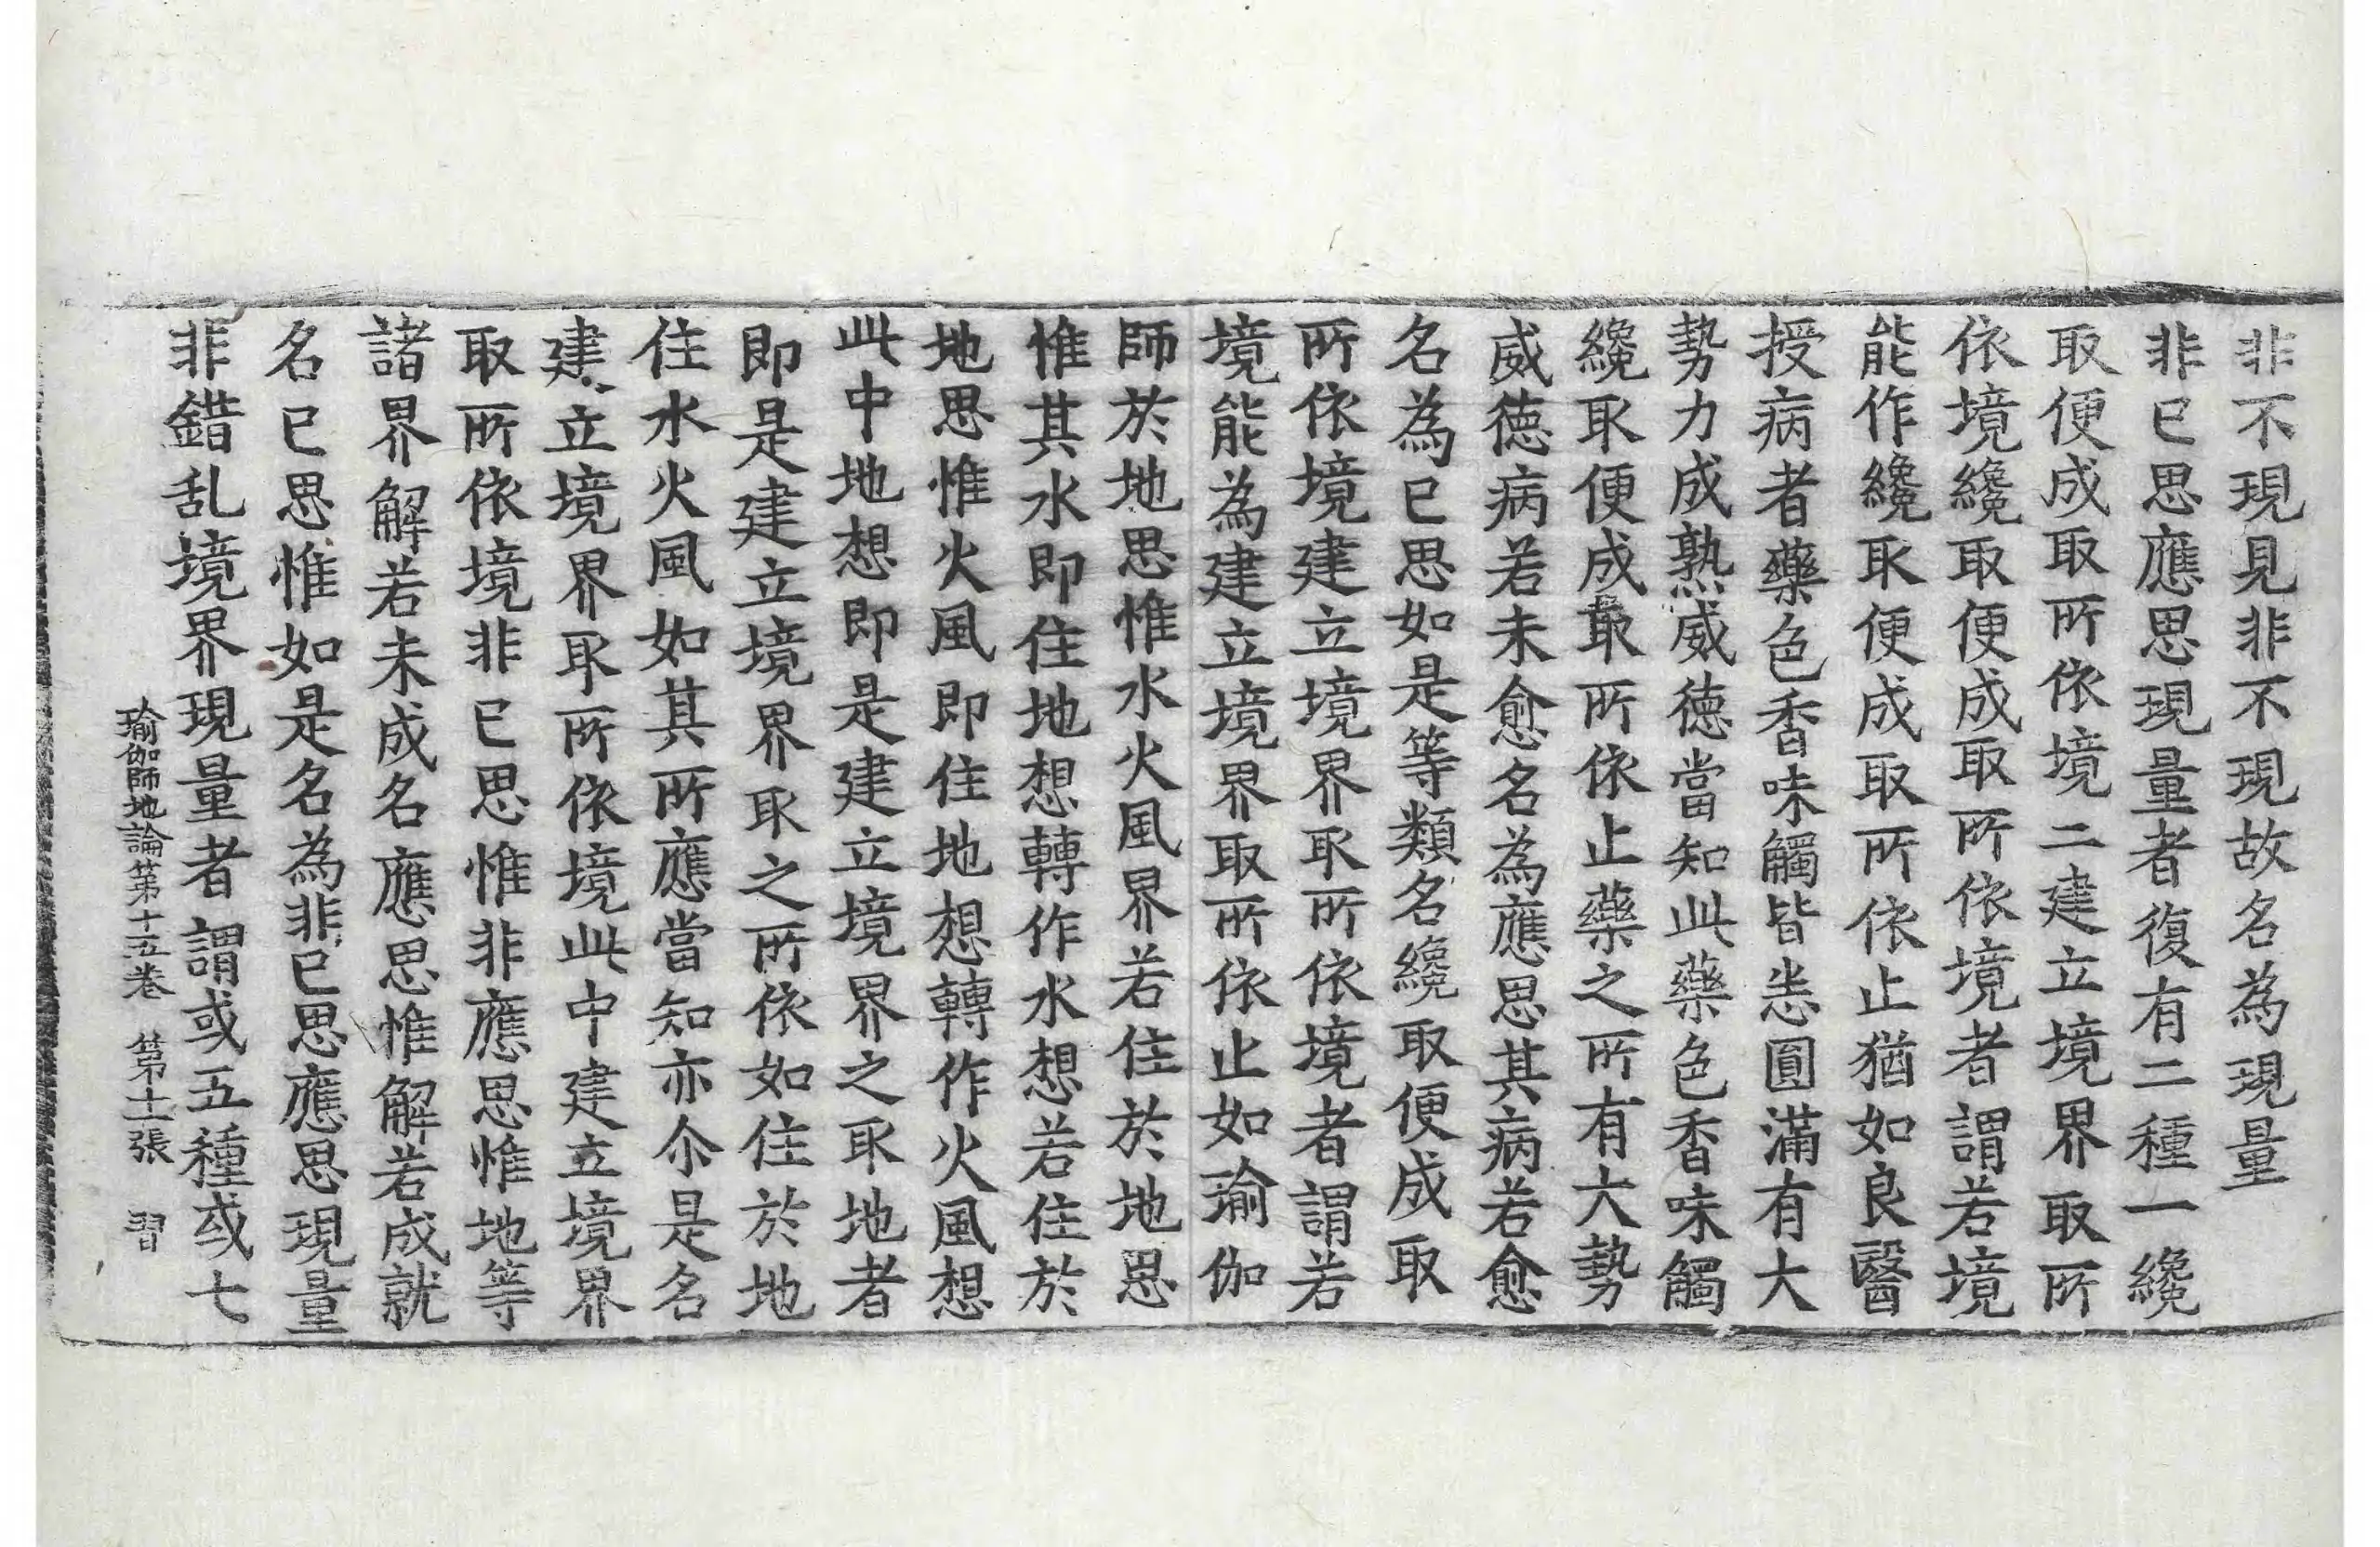 非不現見非不現故名為現量
非已思應思現量者復有二種一纔
取便成取所依境二建立境界取所
依境纔取便成取所依境者謂若境
能作纔取便成取所依止猶如良醫
授病者藥色香味觸皆悉圓滿有大
勢力成熟威德當知此藥色香味觸
纔取便成取所依止藥之所有大勢
威德病若未愈名為應思其病若愈
名為已思如是等類名纔取便成取
所依境建立境界取所依境者謂若
境能為建立境界取所依止如瑜伽
師於地思惟水火風界若住於地思
惟其水即住地想轉作水想若住於
地思惟火風即住地想轉作火風想
此中地想即是建立境界之取地者
即是建立境界取之所依如住於地
住水火風如其所應當知亦尒是名
建立境界取所依境此中建立境界
取所依境非已思惟非應思惟地等
諸界解若未成名應思惟解若成就
名已思惟如是名為非已思應思現量
非錯乱境界現量者謂或五種或七
瑜伽師地論第十五卷　第十二張　習